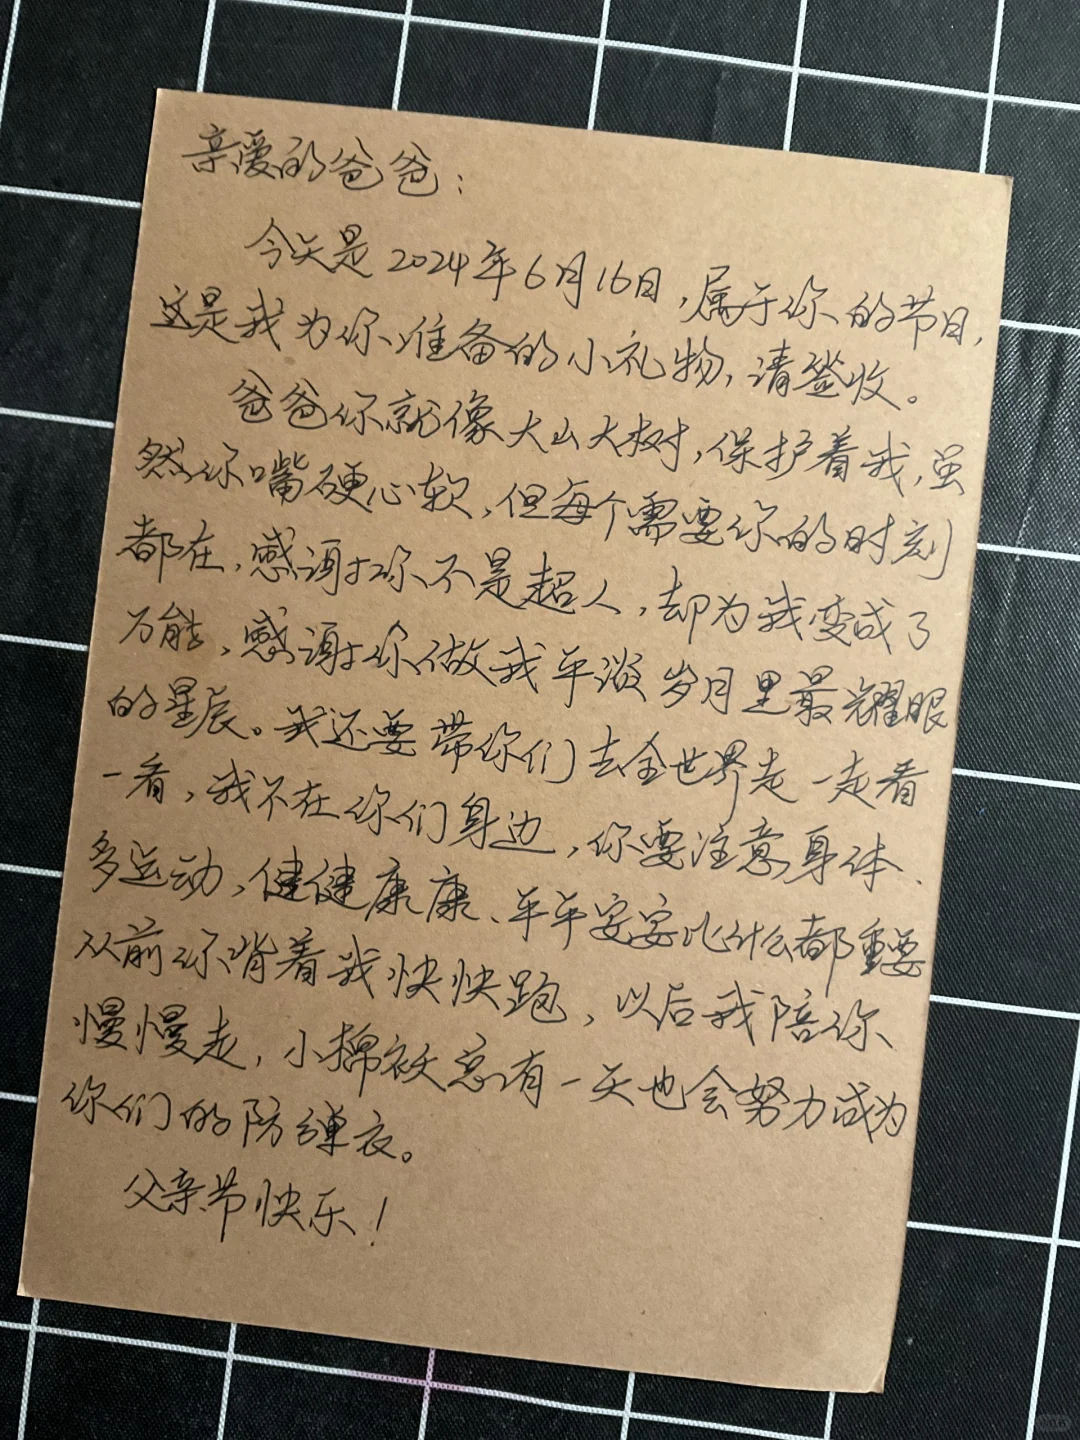 亲爱的爸爸：
今天是2024年6月16日，属于你的节日，
这是我为你准备的小礼物，请签收。
爸爸你就像大山大树，保护着我，虽
然你嘴硬心软，但每个需要你的时刻
都在，感谢你不是超人，却为我变成了
万能，感谢你做我平淡岁月里最耀眼
的星辰。我还要带你们去全世界走一走看
一看，我不在你们身边，你要注意身体、
多运动，健健康康、平平安安比什么都重要
从前你背着我快快跑，以后我陪你
慢慢走，小棉袄总有一天也会努力成为
你们的防弹衣。
父亲节快乐！